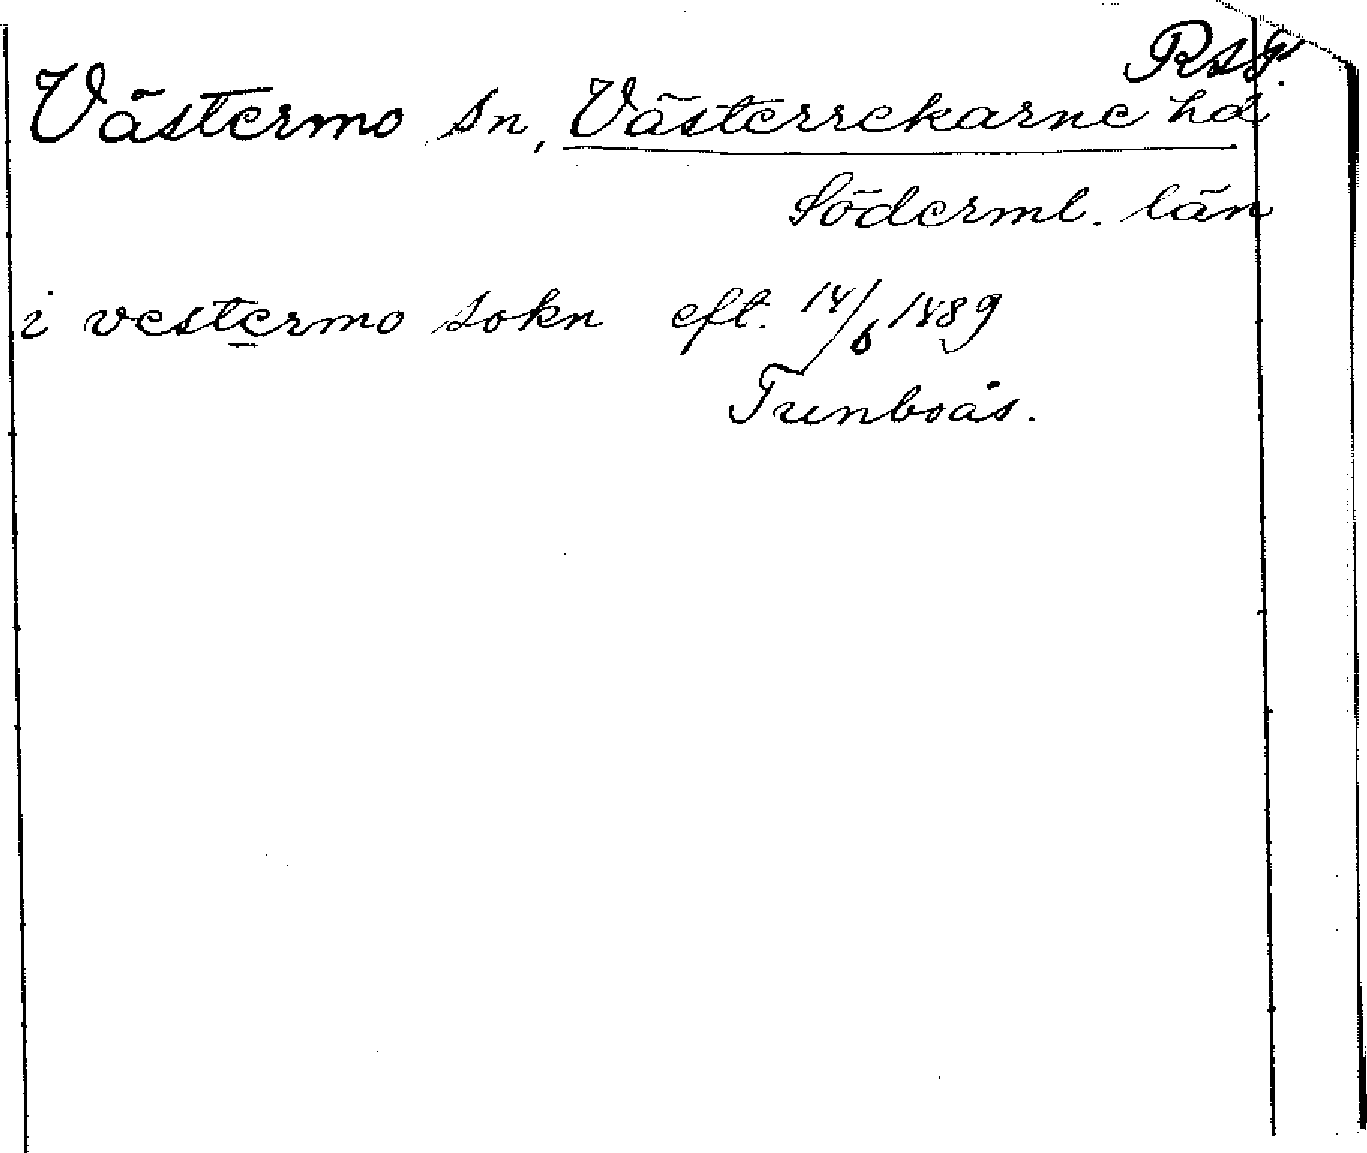 RAP.
Västermo sn, Västerrekarne hd
Söderml. län
i vestermo sokn eft. 14/6 1489
Tunboås.